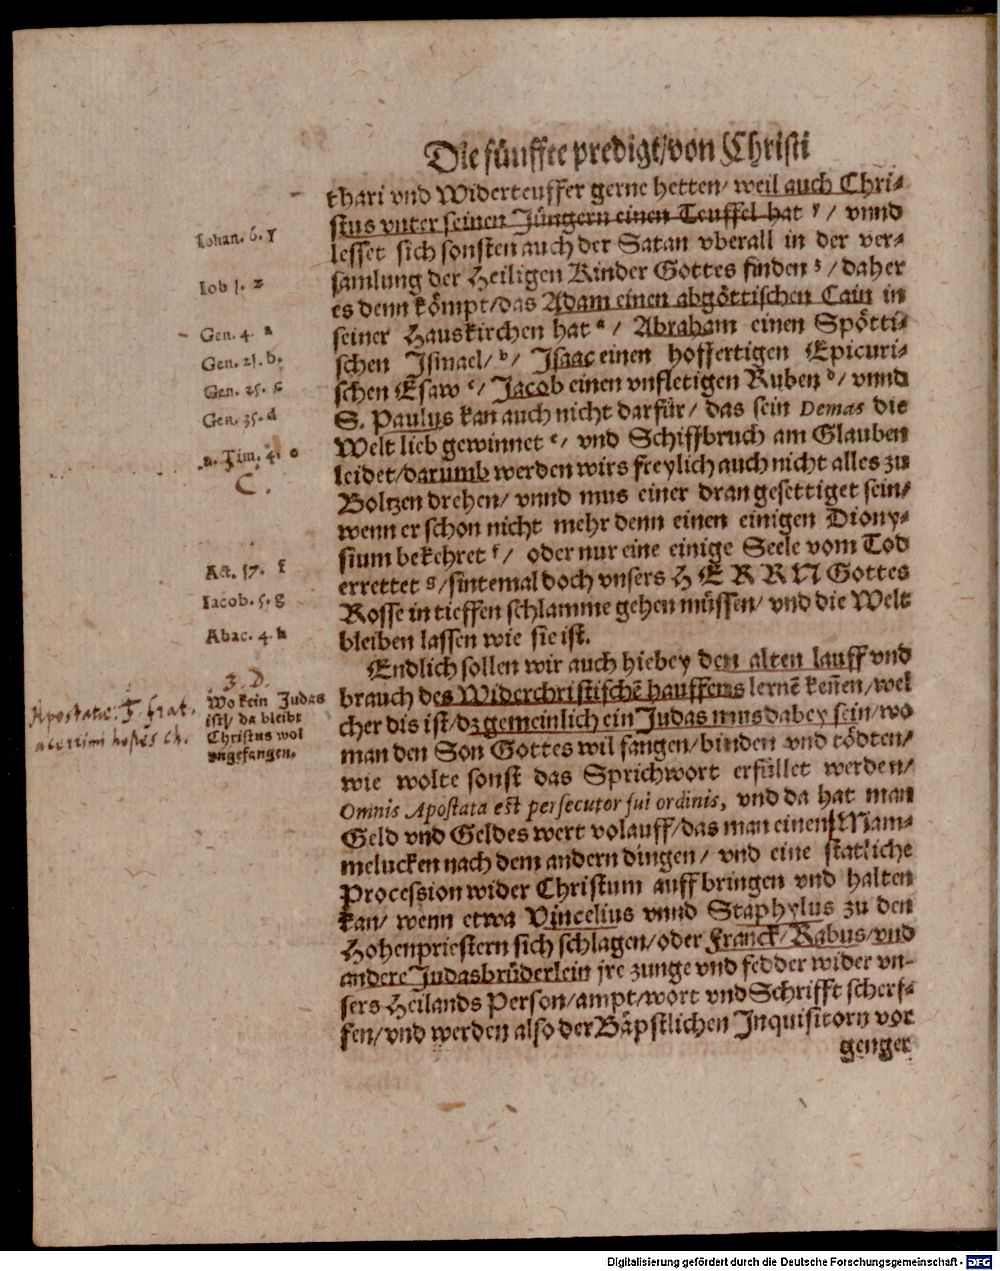 Die fünffte predigt/von Christi
thari vnd Widerteuffer gerne hetten/ weil auch Chri-
stus vnter seinen Jüngern einen Teuffel hat y / vnnd
Iohan. 6. y
lesset sich sonsten auch der Satan vberall in der ver-
samlung der Heiligen Kinder Gottes finden z / daher
Iob 1. z
es denn kömpt/das Adam einen abgöttischen Cain in
seiner Hauskirchen hat a / Abraham einen Spötti-
Gen. 4. a
schen Ismael/ b / Isaac einen hoffertigen Epicuri-
Gen. 21. b.
schen Esaw c / Jacob einen vnfletigen Ruben d / vnnd
Gen. 25. c
S. Paulus kan auch nicht darfür/ das sein Demas die
Gen. 35. d
Welt lieb gewinnet e / vnd Schiffbruch am Glauben
2. Tim. 4. e
leidet/darumb werden wirs freylich auch nicht alles zu
C.
Boltzen drehen/ vnnd mus einer dran gesettiget sein/
wenn er schon nicht mehr denn einen einigen Diony-
sium bekehret f / oder nur eine einige Seele vom Tod
Act. 17. f
errettet g /sintemal doch vnsers HERRN Gottes
Iacob. 5. g
Rosse in tieffen schlamme gehen müssen/ vnd die Welt
bleiben lassen wie sie ist.
Abac. 4. h
Endlich sollen wir auch hiebey den alten lauff vnd
3. D.
brauch des Widerchristischē hauffens lernē keñen/wel
Wo kein Judas
ist/ da bleibt
Christus wol
vngefangen.
Apostatae frat.
acerrimi hostes Ch.
cher dis ist/dz gemeinlich ein Judas mus dabey sein/wo
man den Son Gottes wil fangen/binden vnd tödten/
wie wolte sonst das Sprichwort erfüllet werden/
Omnis Apostata est persecutor sui ordinis, vnd da hat man
Geld vnd Geldes wert volauff/das man einen Mam-
melucken nach dem andern dingen/ vnd eine statliche
Procession wider Christum auffbringen vnd halten
kan/ wenn etwa Vincelius vnnd Staphylus zu den
Hohenpriestern sich schlagen/oder Franck/Rabus/vnd
andere Judasbrüderlein jre zunge vnd fedder wider vn-
sers Heilands Person/ampt/wort vnd Schrifft scherf-
fen/vnd werden also der Bäpstlichen Inquisitorn vor
genger
Digitalisierung gefördert durch die Deutsche Forschungsgemeinschaft - DFG